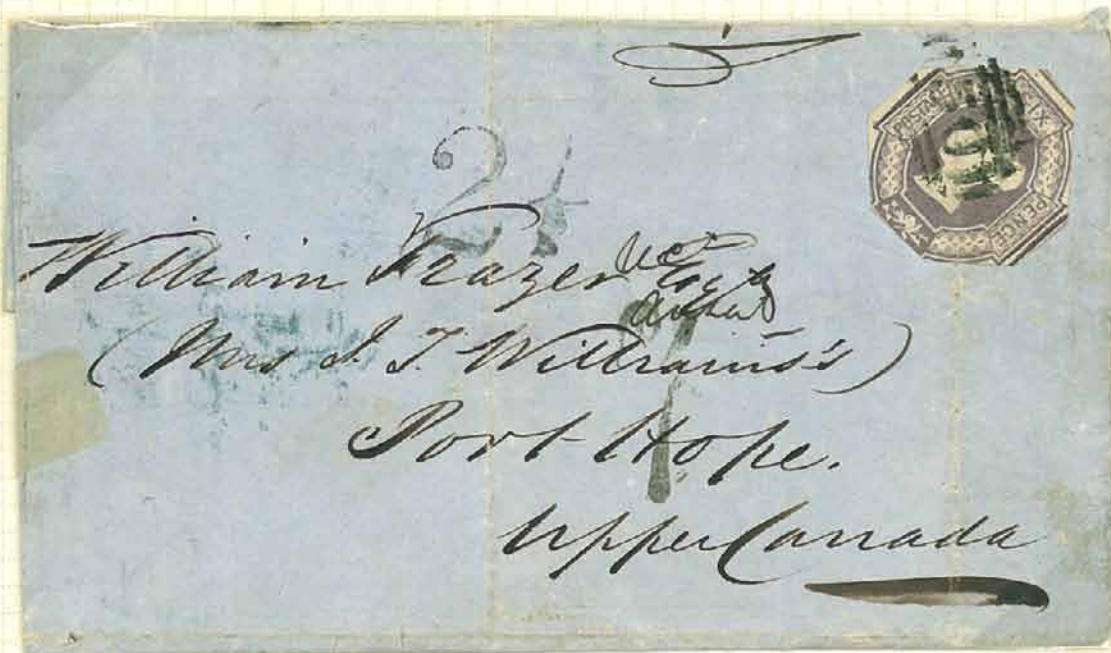 POSTAGE SIX PENCE
10
2
William Frazer Esq
(Mrs J. T. Williams's)
7
Port Hope.
Upper Canada